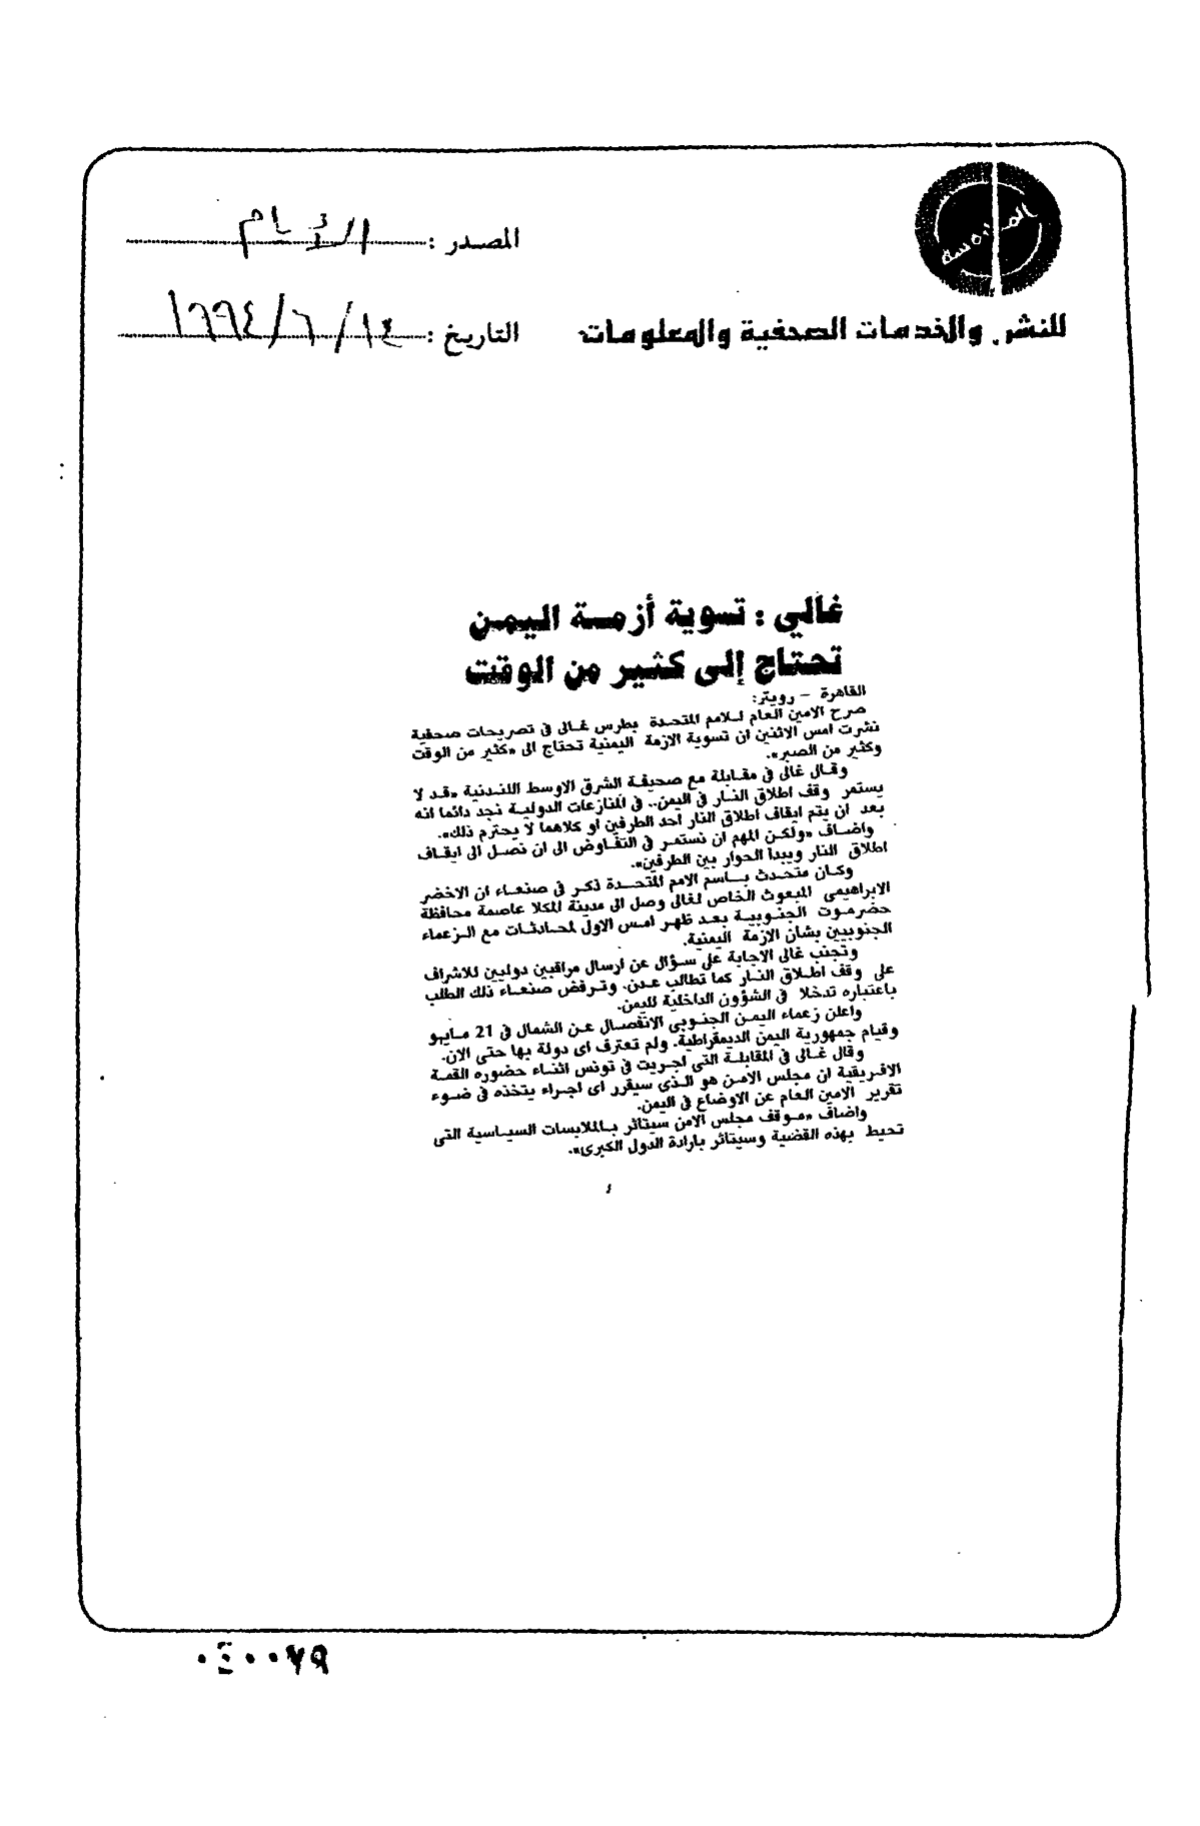 المصدر : الأيام
التاريخ : ١٤ / ٦ / ١٩٩٤
للنشر والخدمات الصحفية والمعلومات
غالي : تسوية أزمة اليمن
تحتاج إلى كثير من الوقت
القاهرة – رويتر:
صرح الامين العام للامم المتحدة بطرس غالى فى تصريحات صحفية
نشرت امس الاثنين ان تسوية الازمة اليمنية تحتاج الى «كثير من الوقت
وكثير من الصبر».
وقال غالى فى مقابلة مع صحيفة الشرق الاوسط اللندنية «قد لا
يستمر وقف اطلاق النار فى اليمن.. فى المنازعات الدولية نجد دائما انه
بعد ان يتم ايقاف اطلاق النار احد الطرفين او كلاهما لا يحترم ذلك».
واضاف «ولكن المهم ان نستمر فى التفاوض الى ان نصل الى ايقاف
اطلاق النار ويبدأ الحوار بين الطرفين».
وكان متحدث باسم الامم المتحدة ذكر فى صنعاء ان الاخضر
الابراهيمى المبعوث الخاص لغالى وصل الى مدينة المكلا عاصمة محافظة
حضرموت الجنوبية بعد ظهر امس الاول لمحادثات مع الزعماء
الجنوبيين بشان الازمة اليمنية.
وتجنب غالى الاجابة على سؤال عن ارسال مراقبين دوليين للاشراف
على وقف اطلاق النار كما تطالب عدن. وترفض صنعاء ذلك الطلب
باعتباره تدخلا فى الشؤون الداخلية لليمن.
واعلن زعماء اليمن الجنوبى الانفصال عن الشمال فى 21 مايو
وقيام جمهورية اليمن الديمقراطية. ولم تعترف اى دولة بها حتى الان.
وقال غالى فى المقابلة التى اجريت فى تونس اثناء حضوره القمة
الافريقية ان مجلس الامن هو الذى سيقرر اى اجراء يتخذه فى ضوء
تقرير الامين العام عن الاوضاع فى اليمن.
واضاف «موقف مجلس الامن سيتاثر بالملابسات السياسية التى
تحيط بهذه القضية وسيتاثر بارادة الدول الكبرى».